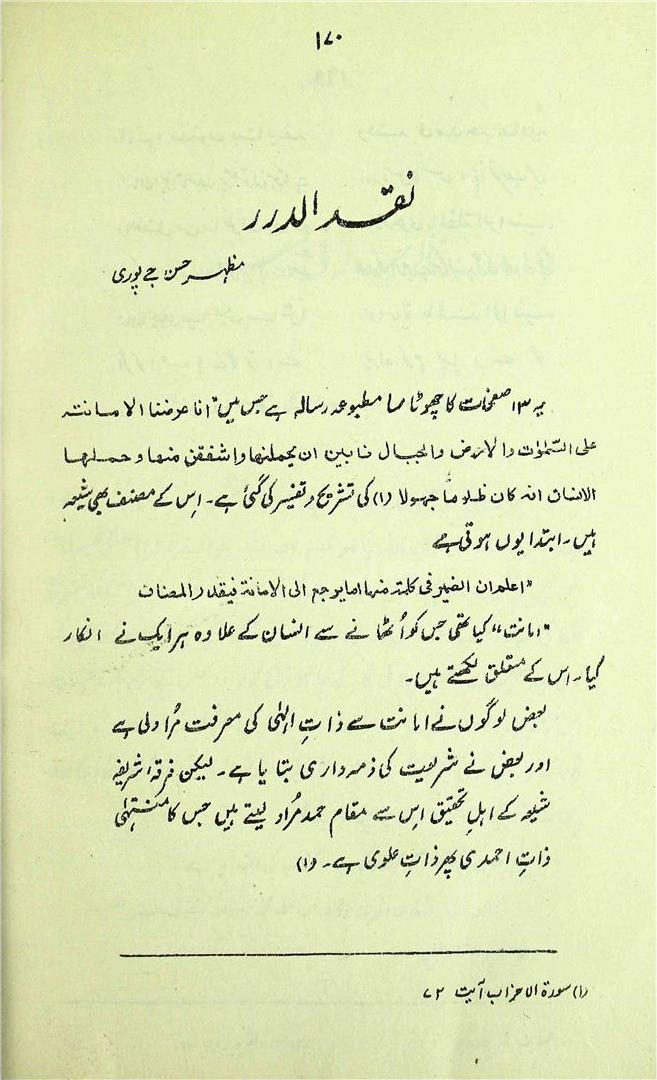 ۱۷۰
نقد الدرر
مظہر حسن جے پوری
یہ ۱۳ صفحات کا چھوٹا سا مطبوعہ رسالہ ہے جس میں "انا عرضنا الامانتہ
علی السّمٰوٰت والارض والجبال فابین ان یحملنھا واشفقن منھا وحملھا
الانسان انہ کان ظلوماً جہولا (۱) کی تشریح و تفسیر کی گئی ہے۔ اس کے مصنف بھی شیعہ
ہیں۔ ابتدا یوں ہوتی ہے
"اعلم ان الضمیر فی کلمتہ منھا اما یرجع الی الامانۃ فیقدر المضاف
"امانت" کیا تھی جس کو اُٹھانے سے انسان کے علاوہ ہر ایک نے انکار
کیا۔ اس کے متعلق لکھتے ہیں۔
بعض لوگوں نے امانت سے ذاتِ الہٰی کی معرفت مُراد لی ہے
اور بعض نے شریعت کی ذمہ داری بتایا ہے۔ لیکن فرقہ شریفہ
شیعہ کے اہلِ تحقیق اِس سے مقام حمد مُراد لیتے ہیں جس کا منتہٰی
ذاتِ احمدی پھر ذاتِ علوی ہے۔ (۱)
(۱) سورۃ الاحزاب آیت ۷۲